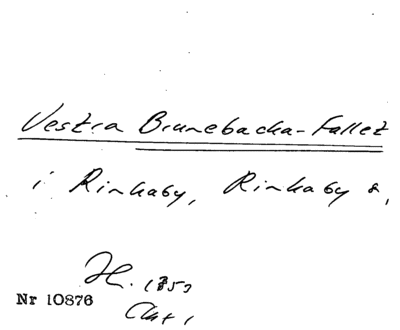 Vestra Brunebacka-Fallet
i Rinkaby, Rinkaby s,
H. 1850
Nr 10876